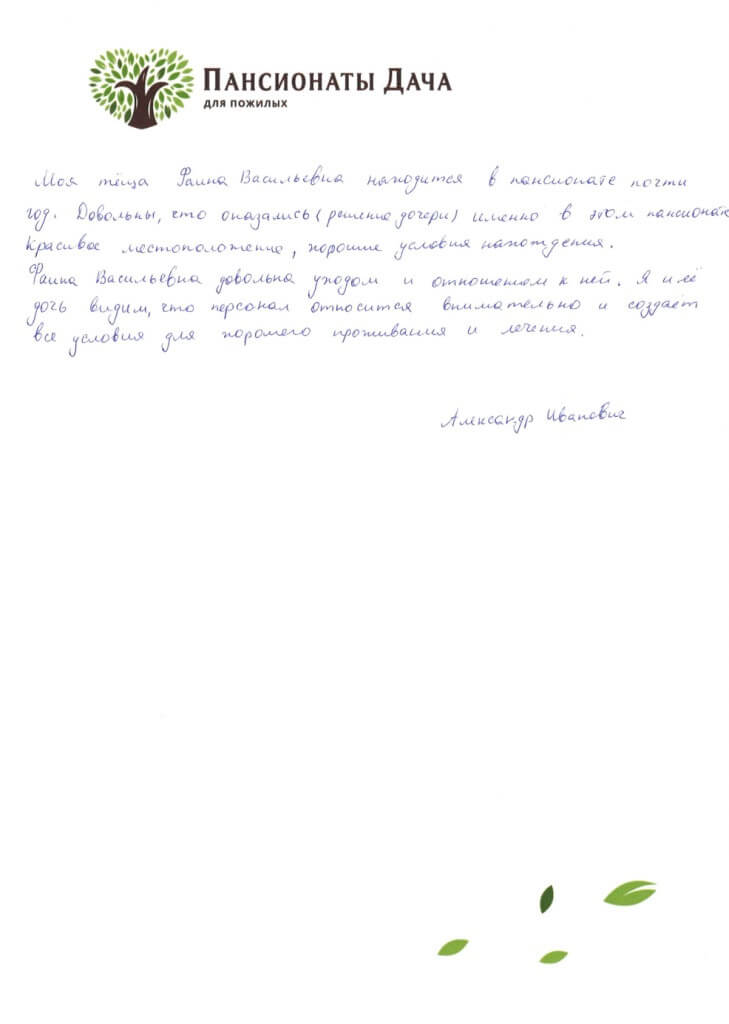 Пансионаты Дача
для пожилых
Моя тёща Фаина Васильевна находится в пансионате почти
год. Довольны, что оказались (решение дочери) именно в этом пансионате
Красивое местоположение, хорошие условия нахождения.
Фаина Васильевна довольна уходом и отношением к ней. Я и её
дочь видим, что персонал относится внимательно и создает
все условия для хорошего проживания и лечения.
Александр Иванович